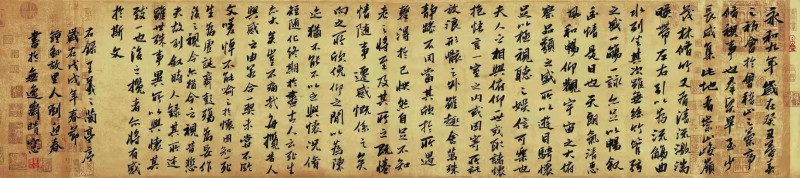 永和九年歲在癸丑暮春
之初會於會稽山陰之蘭亭
脩稧事也羣賢畢至少
長咸集此地有崇山峻領
茂林脩竹又有清流激湍
暎帶左右引以為流觴曲
水列坐其次雖無絲竹管弦
之盛一觴一詠亦足以暢叙
幽情是日也天朗氣清惠
風和暢仰觀宇宙之大俯
察品類之盛所以遊目騁懷
足以極視聽之娛信可樂也
夫人之相與俯仰一世或取諸懷
抱悟言一室之內或因寄所託
放浪形骸之外雖趣舍萬殊
靜躁不同當其欣於所遇
暫得於己快然自足不知
老之將至及其所之既惓
情隨事遷感慨係之矣
向之所欣俛仰之間以為陳
迹猶不能不以之興懷況脩
短隨化終期於盡古人云死生
亦大矣豈不痛哉每攬昔人
興感之由若合一契未嘗不臨
文嗟悼不能喻之於懷固知一死
生為虛誕齊彭殤為妄作
後之視今亦由今之視昔悲
夫故列叙時人錄其所述
雖世殊事異所以興懷其
致一也後之攬者亦將有感
於斯文
右錄王羲之蘭亭序
歲在戊戌年春節
鍾馗故里人劉迎春
書於無逸齋晴窗